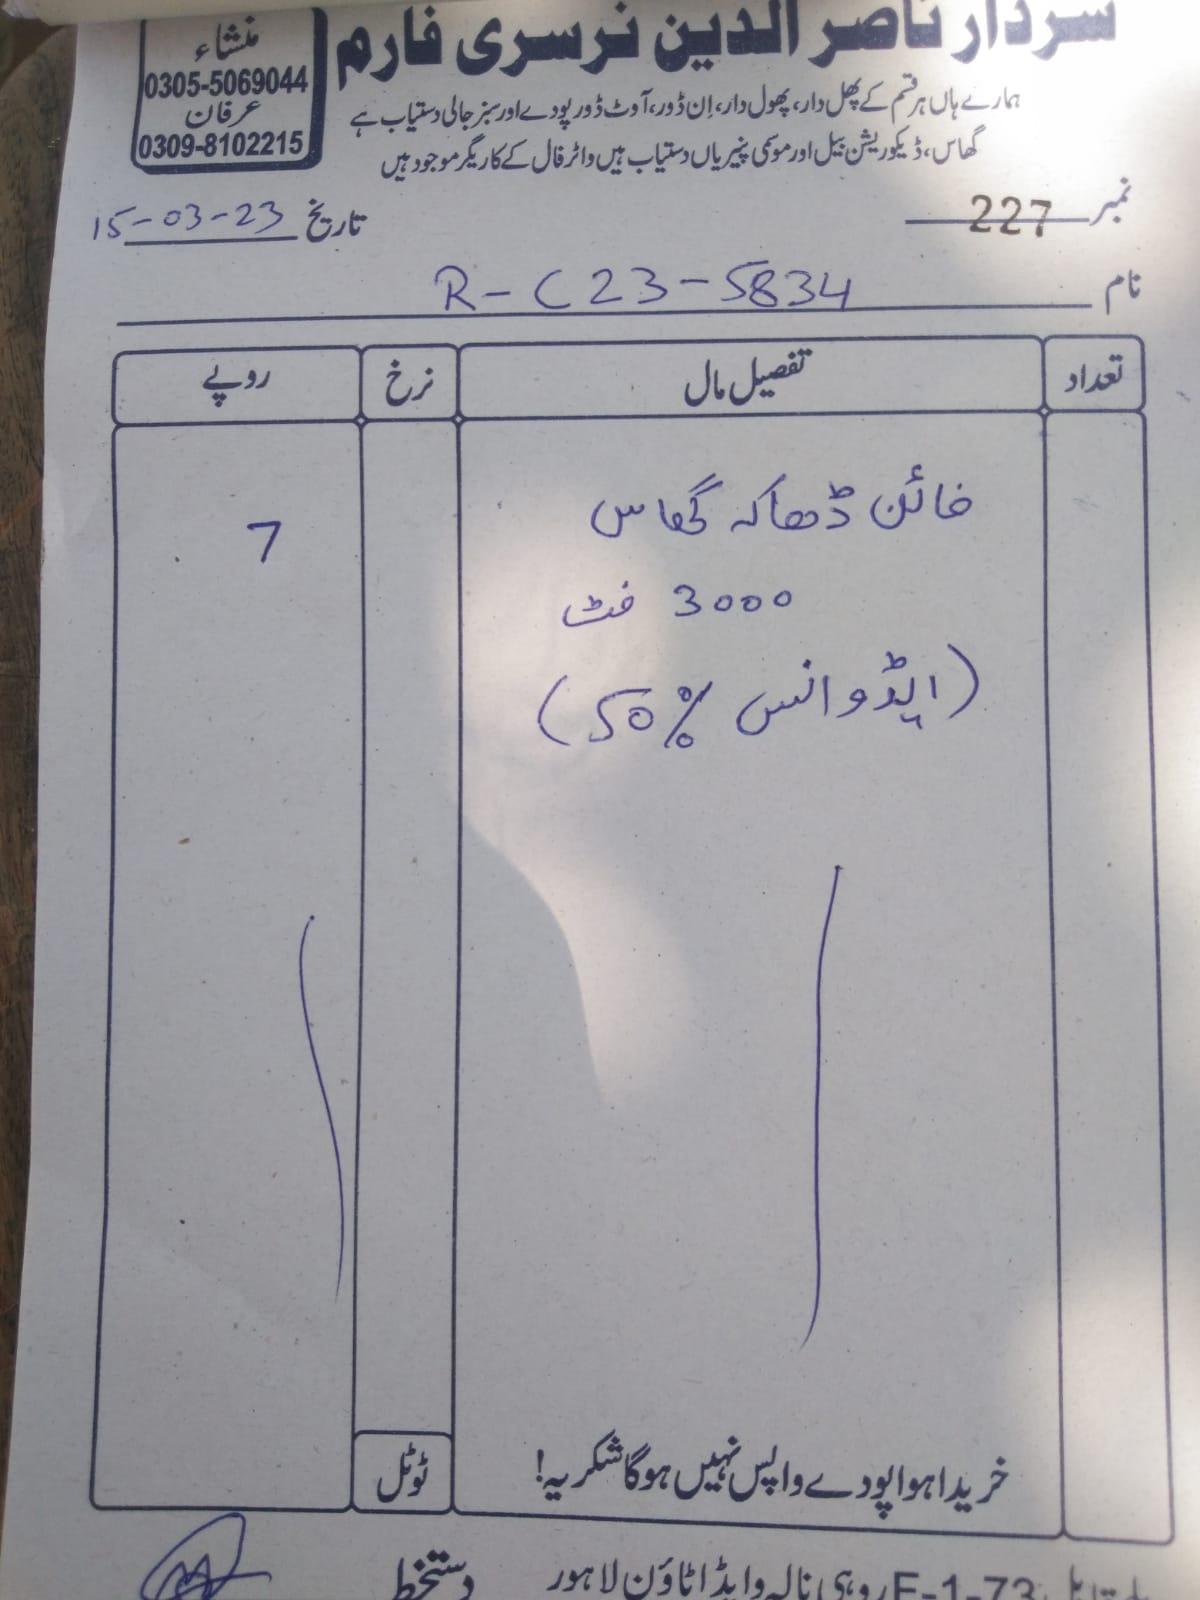 سردار ناصر الدین نرسری فارم
منشاء
0305-5069044
عرفان
0309-8102215
ہمارے ہاں ہر قسم کے پھل دار، پھول دار، اِن ڈور، آوٹ ڈور پودے اور سبز جالی دستیاب ہے
گھاس، ڈیکوریشن بیل اور موسمی پنیریاں دستیاب ہیں واٹر فال کے کاریگر موجود ہیں
نمبر 227
تاریخ 15-03-23
نام R-C23-5834
تعداد تفصیل مال نرخ روپے
فائن ڈھاکہ گھاس 7
3000 فٹ
(ایڈوانس 50%)
خریدا ہوا پودے واپس نہیں ہوگا شکریہ!
ٹوٹل
F-1-73 روہی نالہ واپڈا ٹاؤن لاہور
دستخط